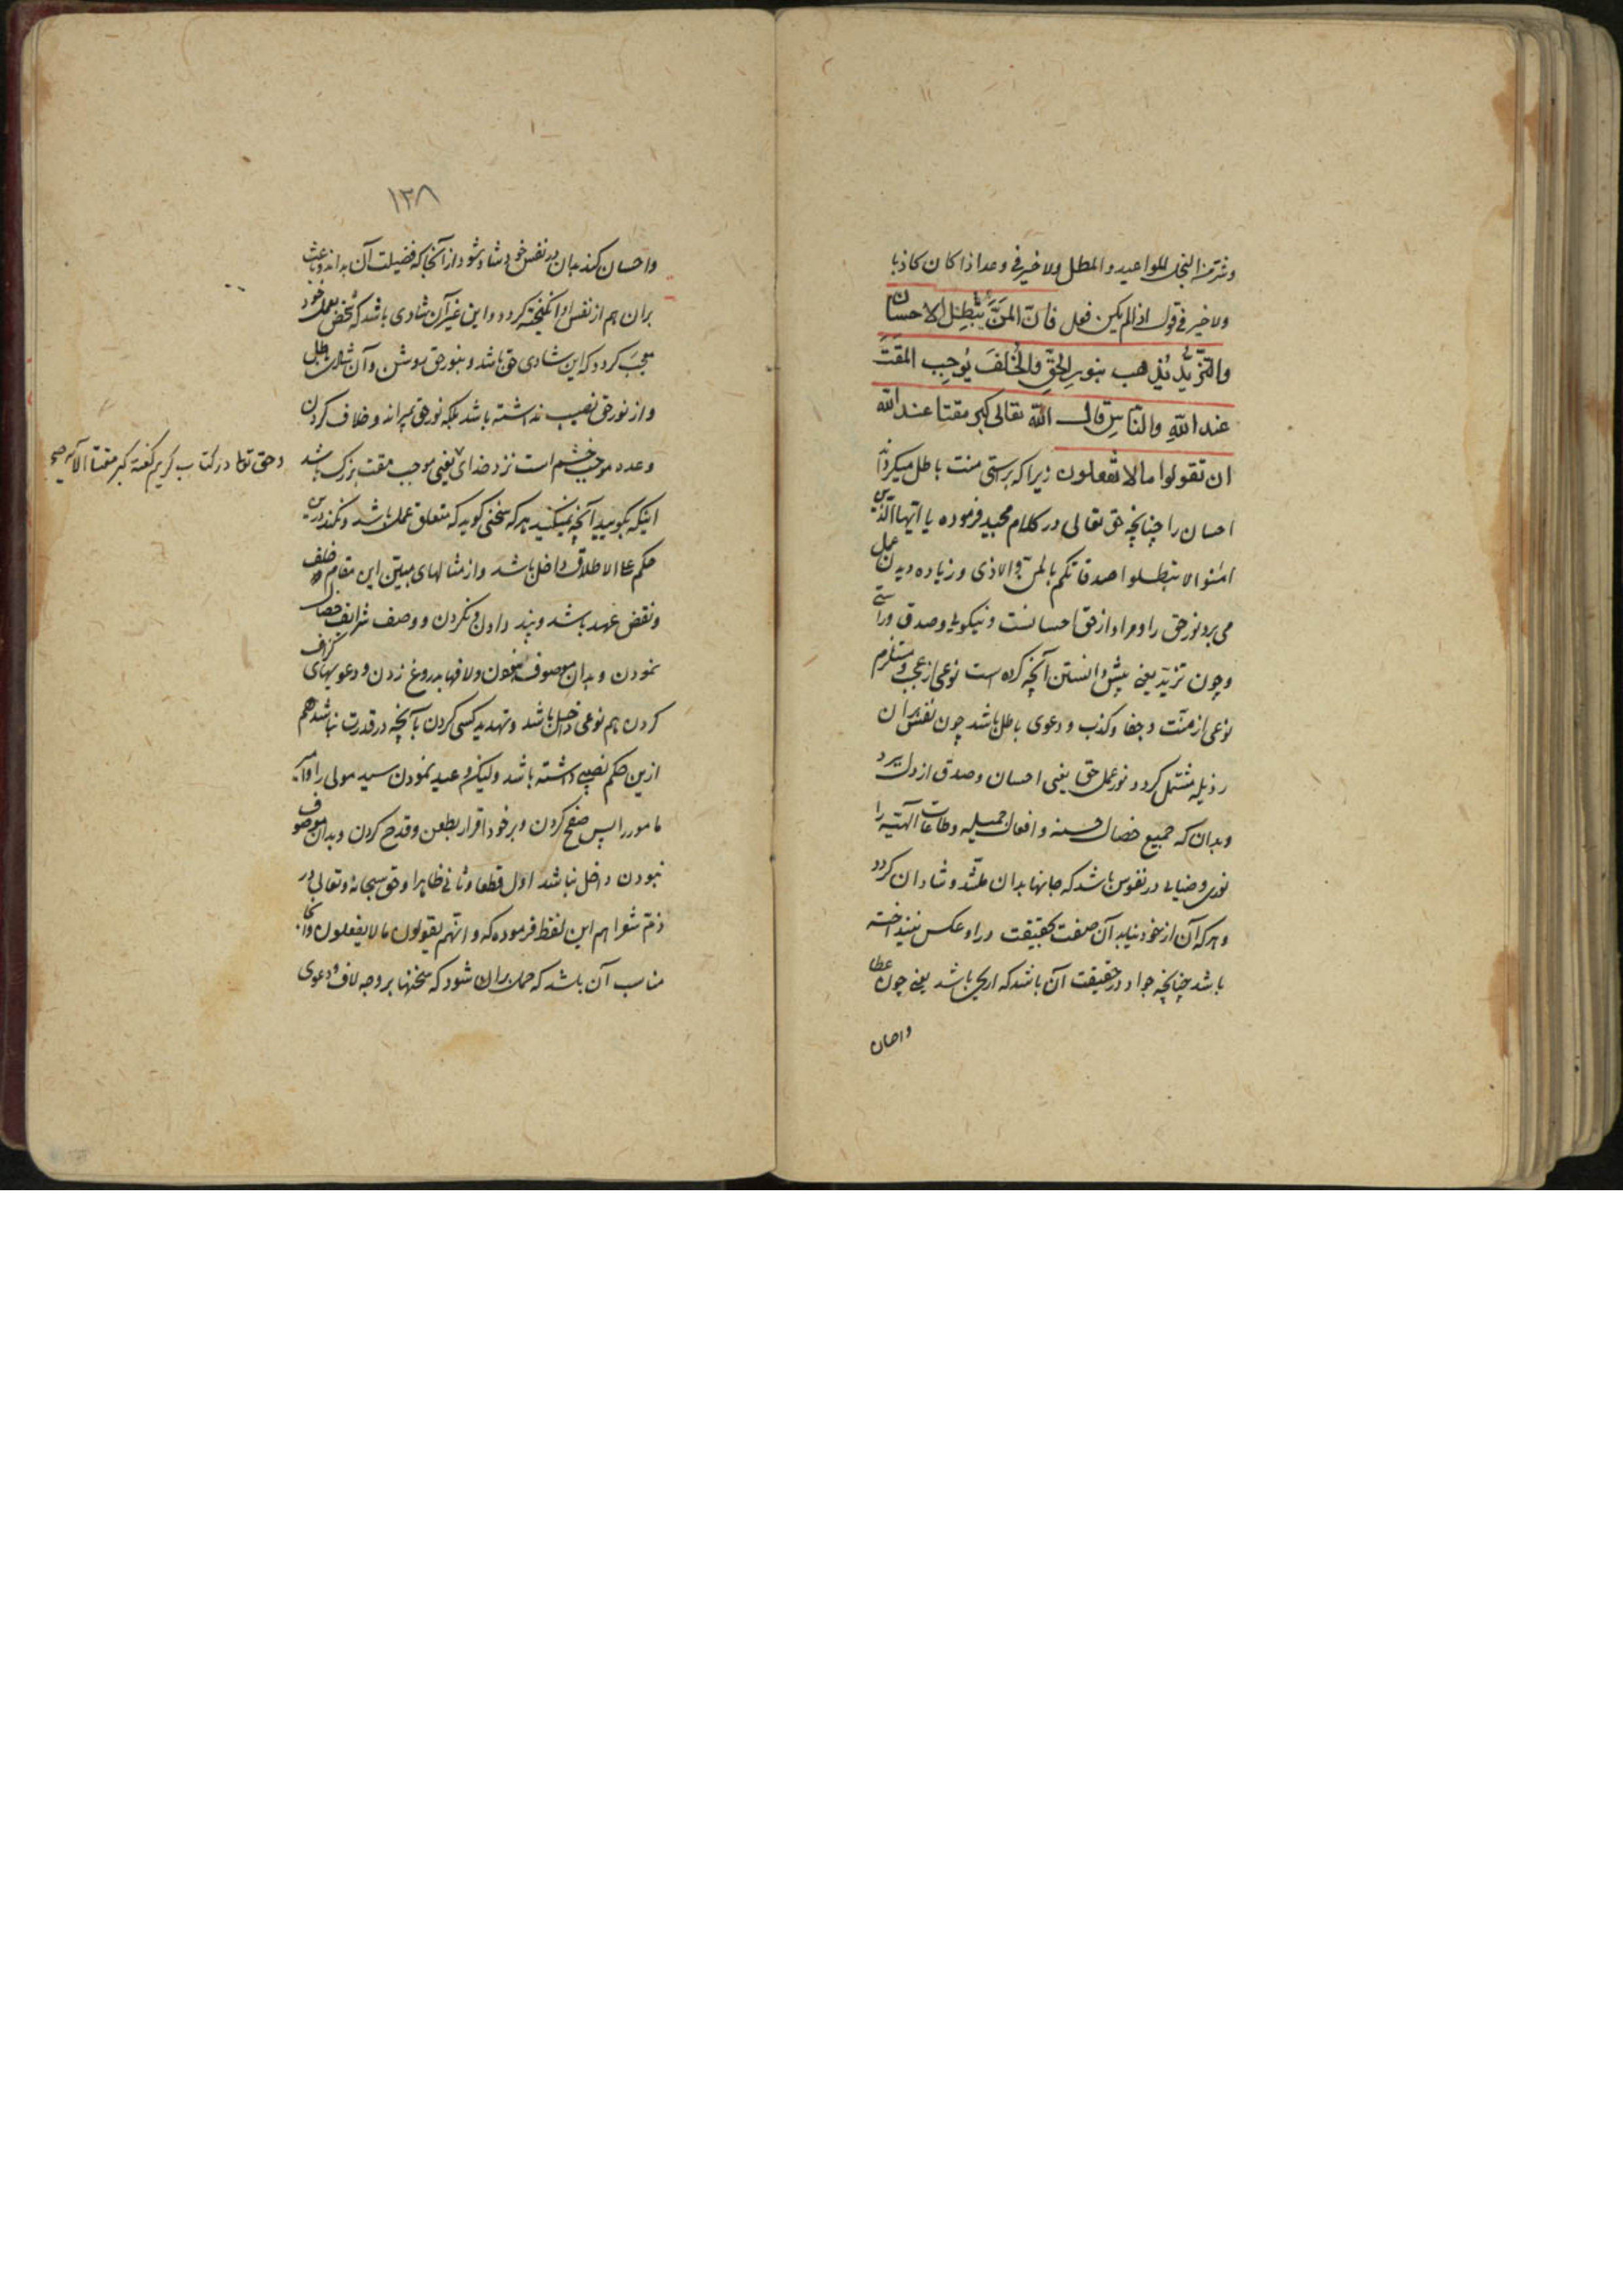 وشر من البخل المواعید والمطل ولا خیر فی وعد اذا کان کاذبا
ولا خیر فی قول اذا لم یکن فعل فَاِنَّ المَنَّ یُبطِلُ الاحسان
وَالتَّزَیُّدَ یَذهب بنورِ الحَقِّ وَالخُلفَ یُوجِب المَقتَ
عند اللهِ وَالنّاسِ قال الله تعالی کبر مقتا عند الله
ان تقولوا ما لا تفعلون زیرا که براستی منت باطل میکرداند
احسان را چنانچه حق تعالی در کلام مجید فرموده یا ایها الذین
امنوا لا تبطلوا صدقاتکم بالمن والاذی و زیاده دیدن عمل
می برد نور حق را و مراد از حق احسانست و نیکویی و صدق و راستی
و چون تزید یعنی بیش دانستن آنچه کرده است نوعی از عجب و مستلزم
نوعی از منت و جفا و کذب و دعوی باطل باشد چون نفس بر ان
رذیله مشتمل کردد نور عمل حق یعنی احسان و صدق از دل ببرد
و بدان که جمیع خصال حسنه و افعال جمیله و طاعات آلهیه را
نوری و ضیایی در نفوس باشد که جانها بدان ملتذ و شادان کردد
و هر که آن از خود نیابد آن صفت بحقیقت در او عکس نینداخته
باشد چنانچه جواد در حقیقت آن باشد که اریحی باشد یعنی چون عطا
واحسان
۱۳۸
واحسان کند بدان در نفس خود شاد شود از آنجا که فضیلت آن بداند و باعث
بران هم از نفس او انکیخته کردد و این غیر آن شادی باشد که شخص بعمل خود
معجب کردد که این شادی حق باشد و بنور حق روشن و آن شادی باطل
و از نور حق نصیب نداشته باشد بلکه نور حق بمیراند و خلاف کردن
وعده موجب خشم است نزد خدای یعنی موجب مقت بزرک باشد
و حق تعالی در کتاب کریم گفته کبر مقتا الآیه صح
اینکه بکویید آنچه نمیکنید هر که سخنی کوید که متعلق عمل باشد و نکند درین
حکم علی الاطلاق داخل باشد و از مثالهای مبین این مقام خلف وعده
و نقض عهد باشد و پند دادن و نکردن و وصف شرایف خصال
نمودن و بدان موصوف نبودن و لافها بدروغ زدن و دعویهای کزاف
کردن هم نوعی داخل باشد و تهدید کسی کردن بآنچه در قدرت نباشد هم
ازین حکم نصیبی داشته باشد ولیکن وعید نمودن سید مولی را و آمر
مامور را پس صفح کردن و بر خود اقرار بطعن و قدح کردن و بدان موصوف
نبودن داخل نباشد اول قطعا و ثانی ظاهرا و حق سبحانه و تعالی در
ذم شعرا هم این لفظ فرموده که و انهم یقولون ما لا یفعلون و آنجا
مناسب آن باشد که حمل بران شود که سخنها بر وجه لاف و دعوی